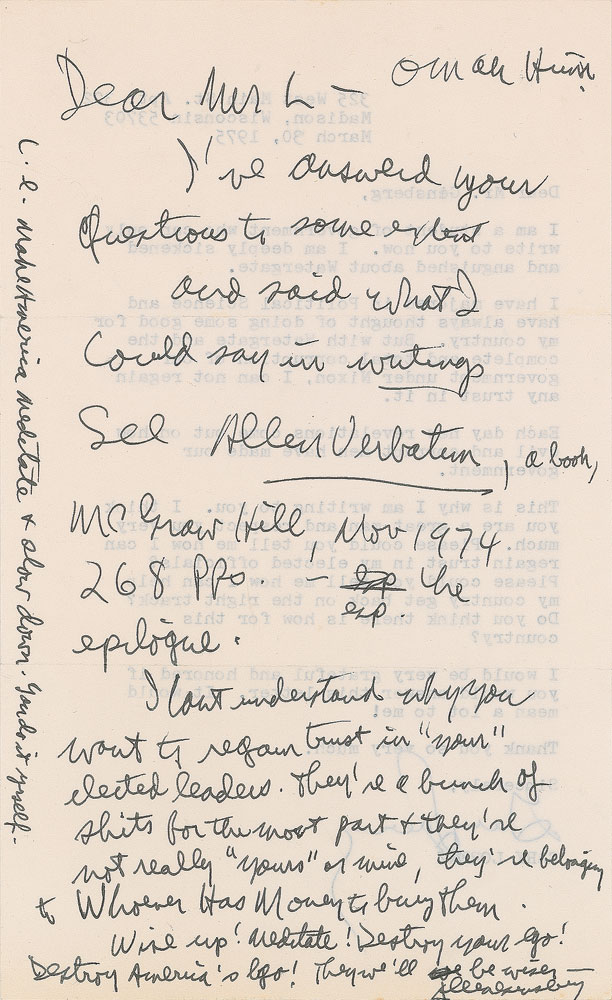 Om Ah Hūm
Dear Mr L—
I've answerd your
Questions to some extent
and said what I
Could say in writings
See Allen Verbatim, a book,
McGraw Hill, Nov 1974
268 pps. — esp. the
epilogue.
I dont understand why you
want to regain trust in "your"
elected leaders. They're a bunch of
shits for the most part & they're
not really "yours" or mine, they're belonging
to Whoever Has Money to buy them.
Wise up! Meditate! Destroy your ego!
Destroy America's Ego! They we'll be wiser —
Allen Ginsberg
i.e. Make America meditate & slow down. You do it yrself.
325 West
Madison, Wisconsin 53703
March 30, 1975
Dear Mr. Ginsberg,
I am a
write to you now. I am deeply sickened
and anguished about Watergate.
I have Political Science and
have always thought of doing some good for
my country. But with Watergate and the
complete
government under Nixon, I can not regain
any trust in it.
Each day new revelations come out on
have made our
government.
This is why I am writing to you. I think
you are a
much. Please could you tell me how I can
regain trust in my elected officials
Please could you tell me how
my country get back on the right track?
Do you think there is hope for this
country?
I would be very grateful and honored if
you would
mean a lot to me!
Thank you very much.